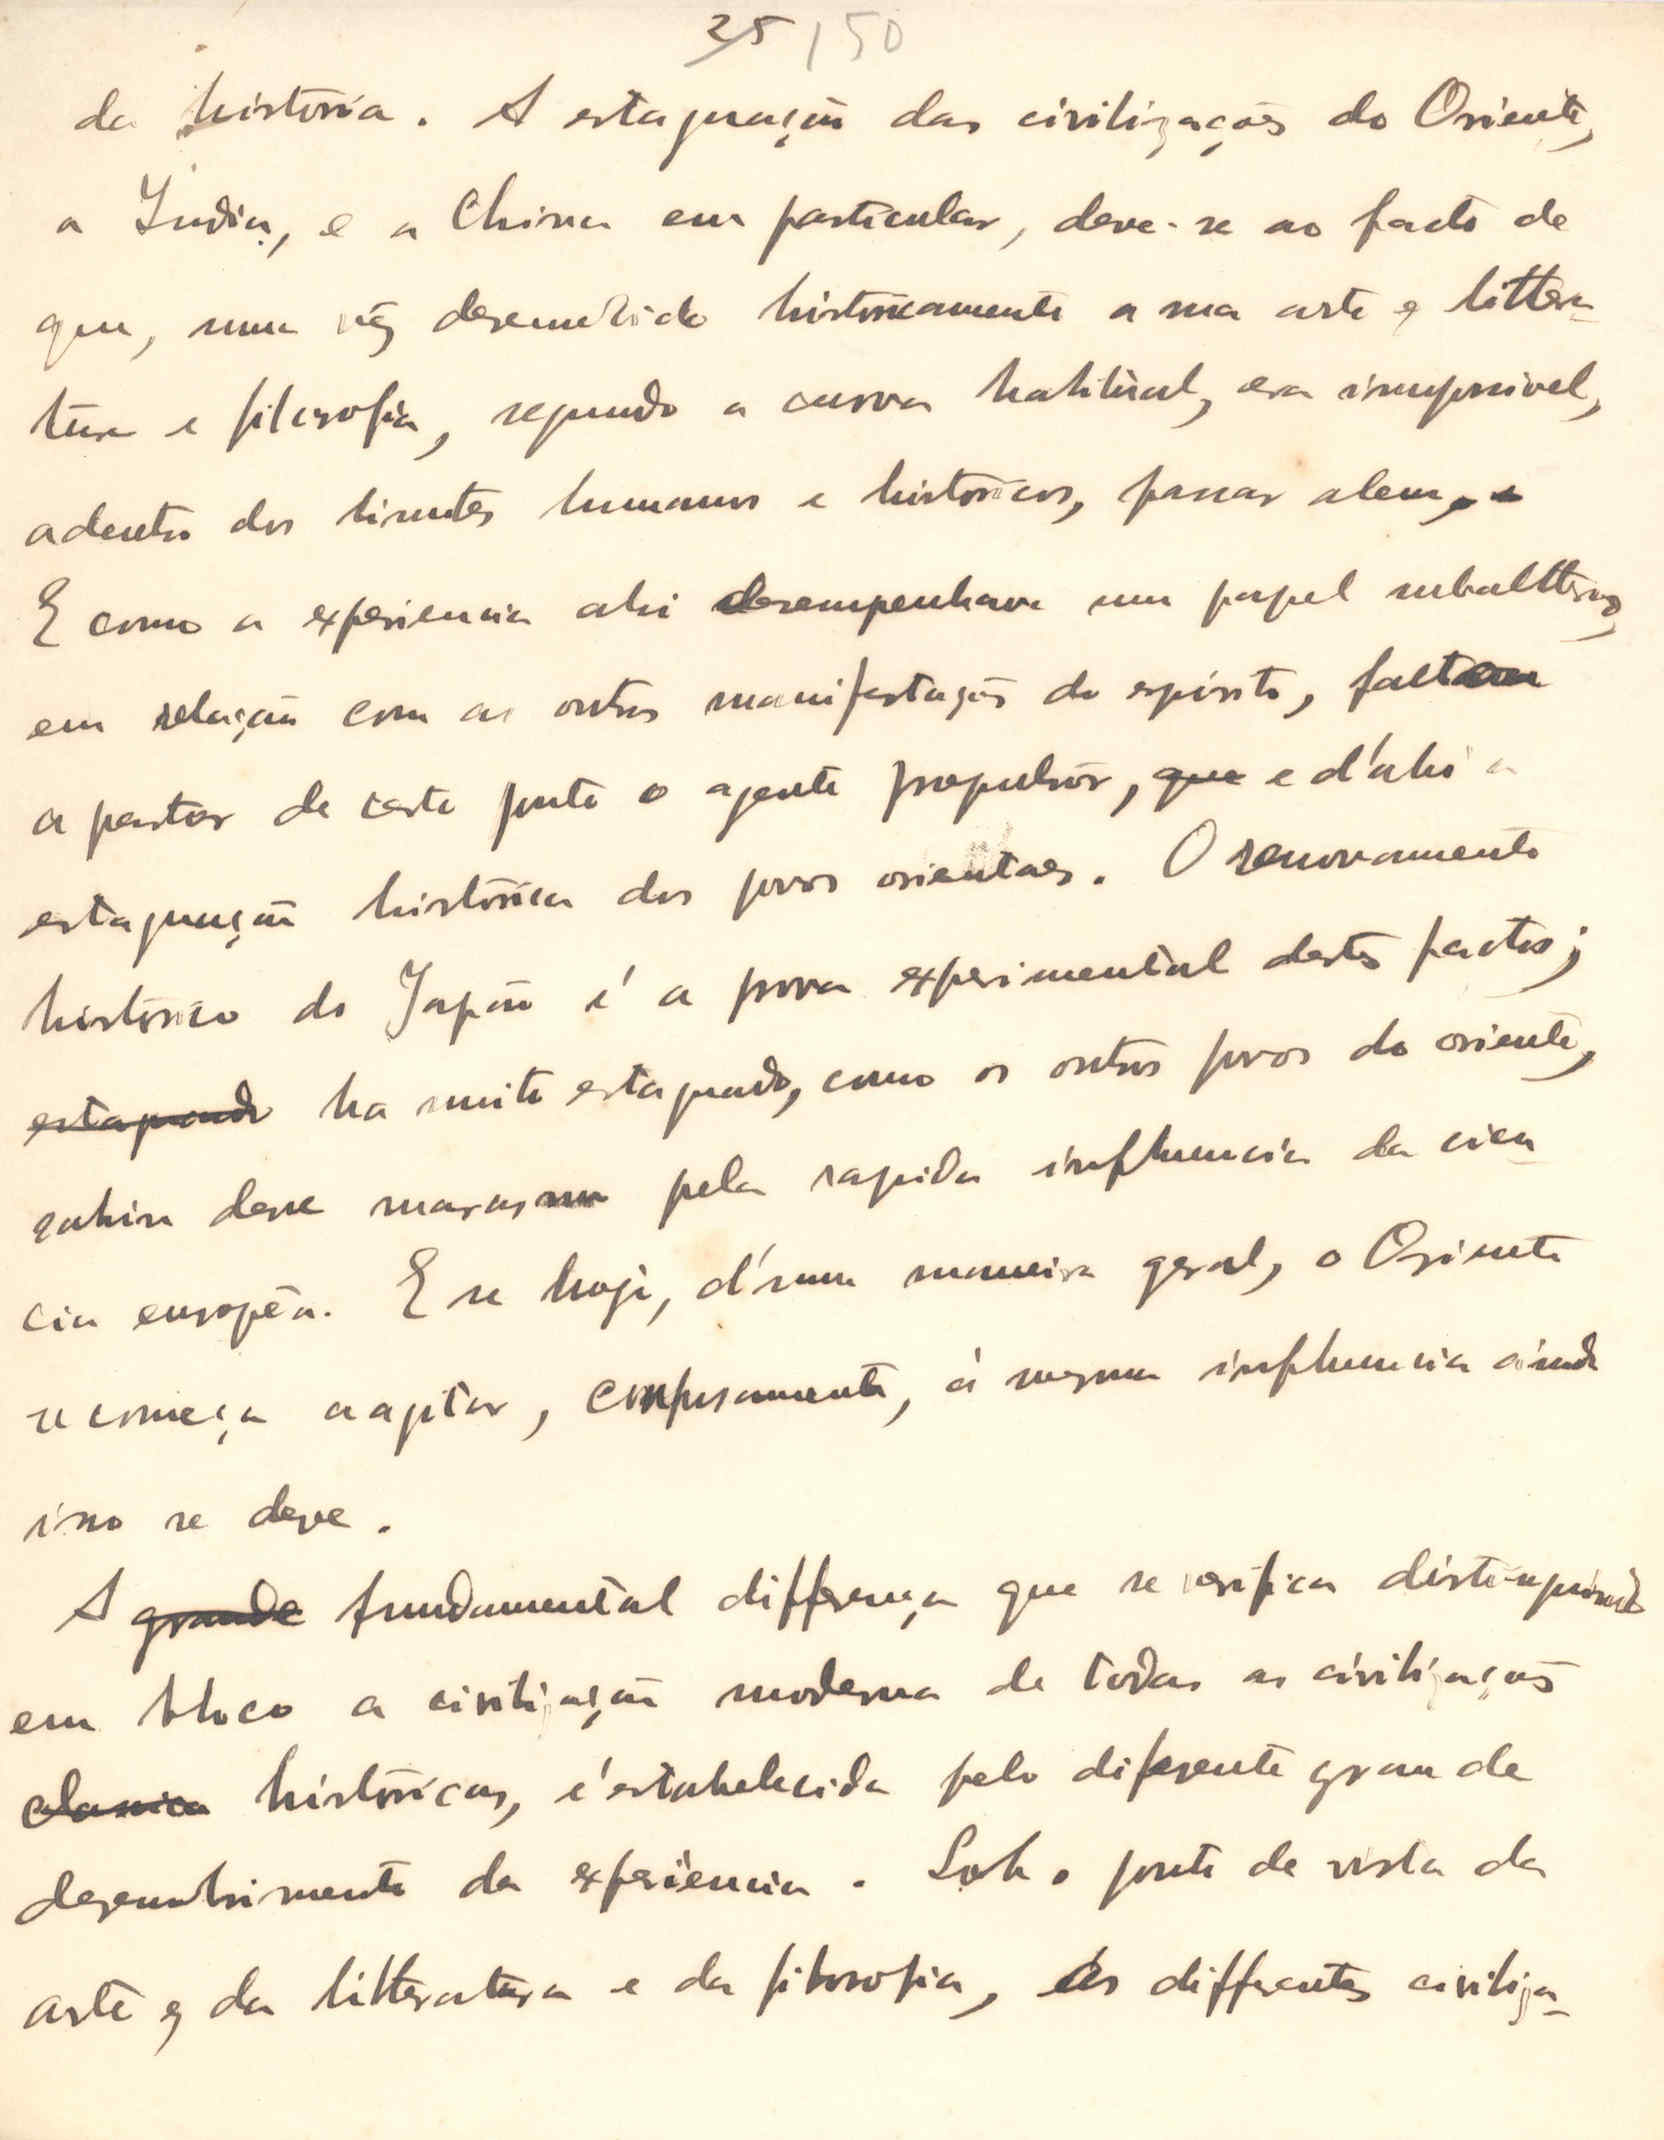 25 150
da história. A estagnação das civilizações do Oriente,
a India, e a China em particular, deve-se ao facto de
que, uma vez desenvolvido históricamente a sua arte e littera-
tura e filosofia, segundo a curva habitual, era impossivel,
adentro dos limites humanos e históricos, passar alem,
E como a experiencia ahi desempenhava um papel subalterno,
em relação com as outras manifestações do espirito, faltou
a partir de certo ponto o agente propulsor, que e d'ahi a
estagnação histórica dos povos orientaes. O renovamento
histórico do Japão é a prova experimental destes factos;
estagnado ha muito estagnado, como os outros povos do oriente,
sahiu desse marasmo pela rapida influencia da cien
cia européa. E se hoje, d'uma maneira geral, o Oriente
se começa a agitar, confusamente, á mesma influencia ainda
isso se deve.
A grande fundamental differença que se verifica distinguindo
em bloco a civilização moderna de todas as civilizações
classica históricas, é estabelecida pelo diferente grau de
desenvolvimento da experiencia. Sob o ponto de vista da
arte e da litteratura e da filosofia, as differentes civiliza-